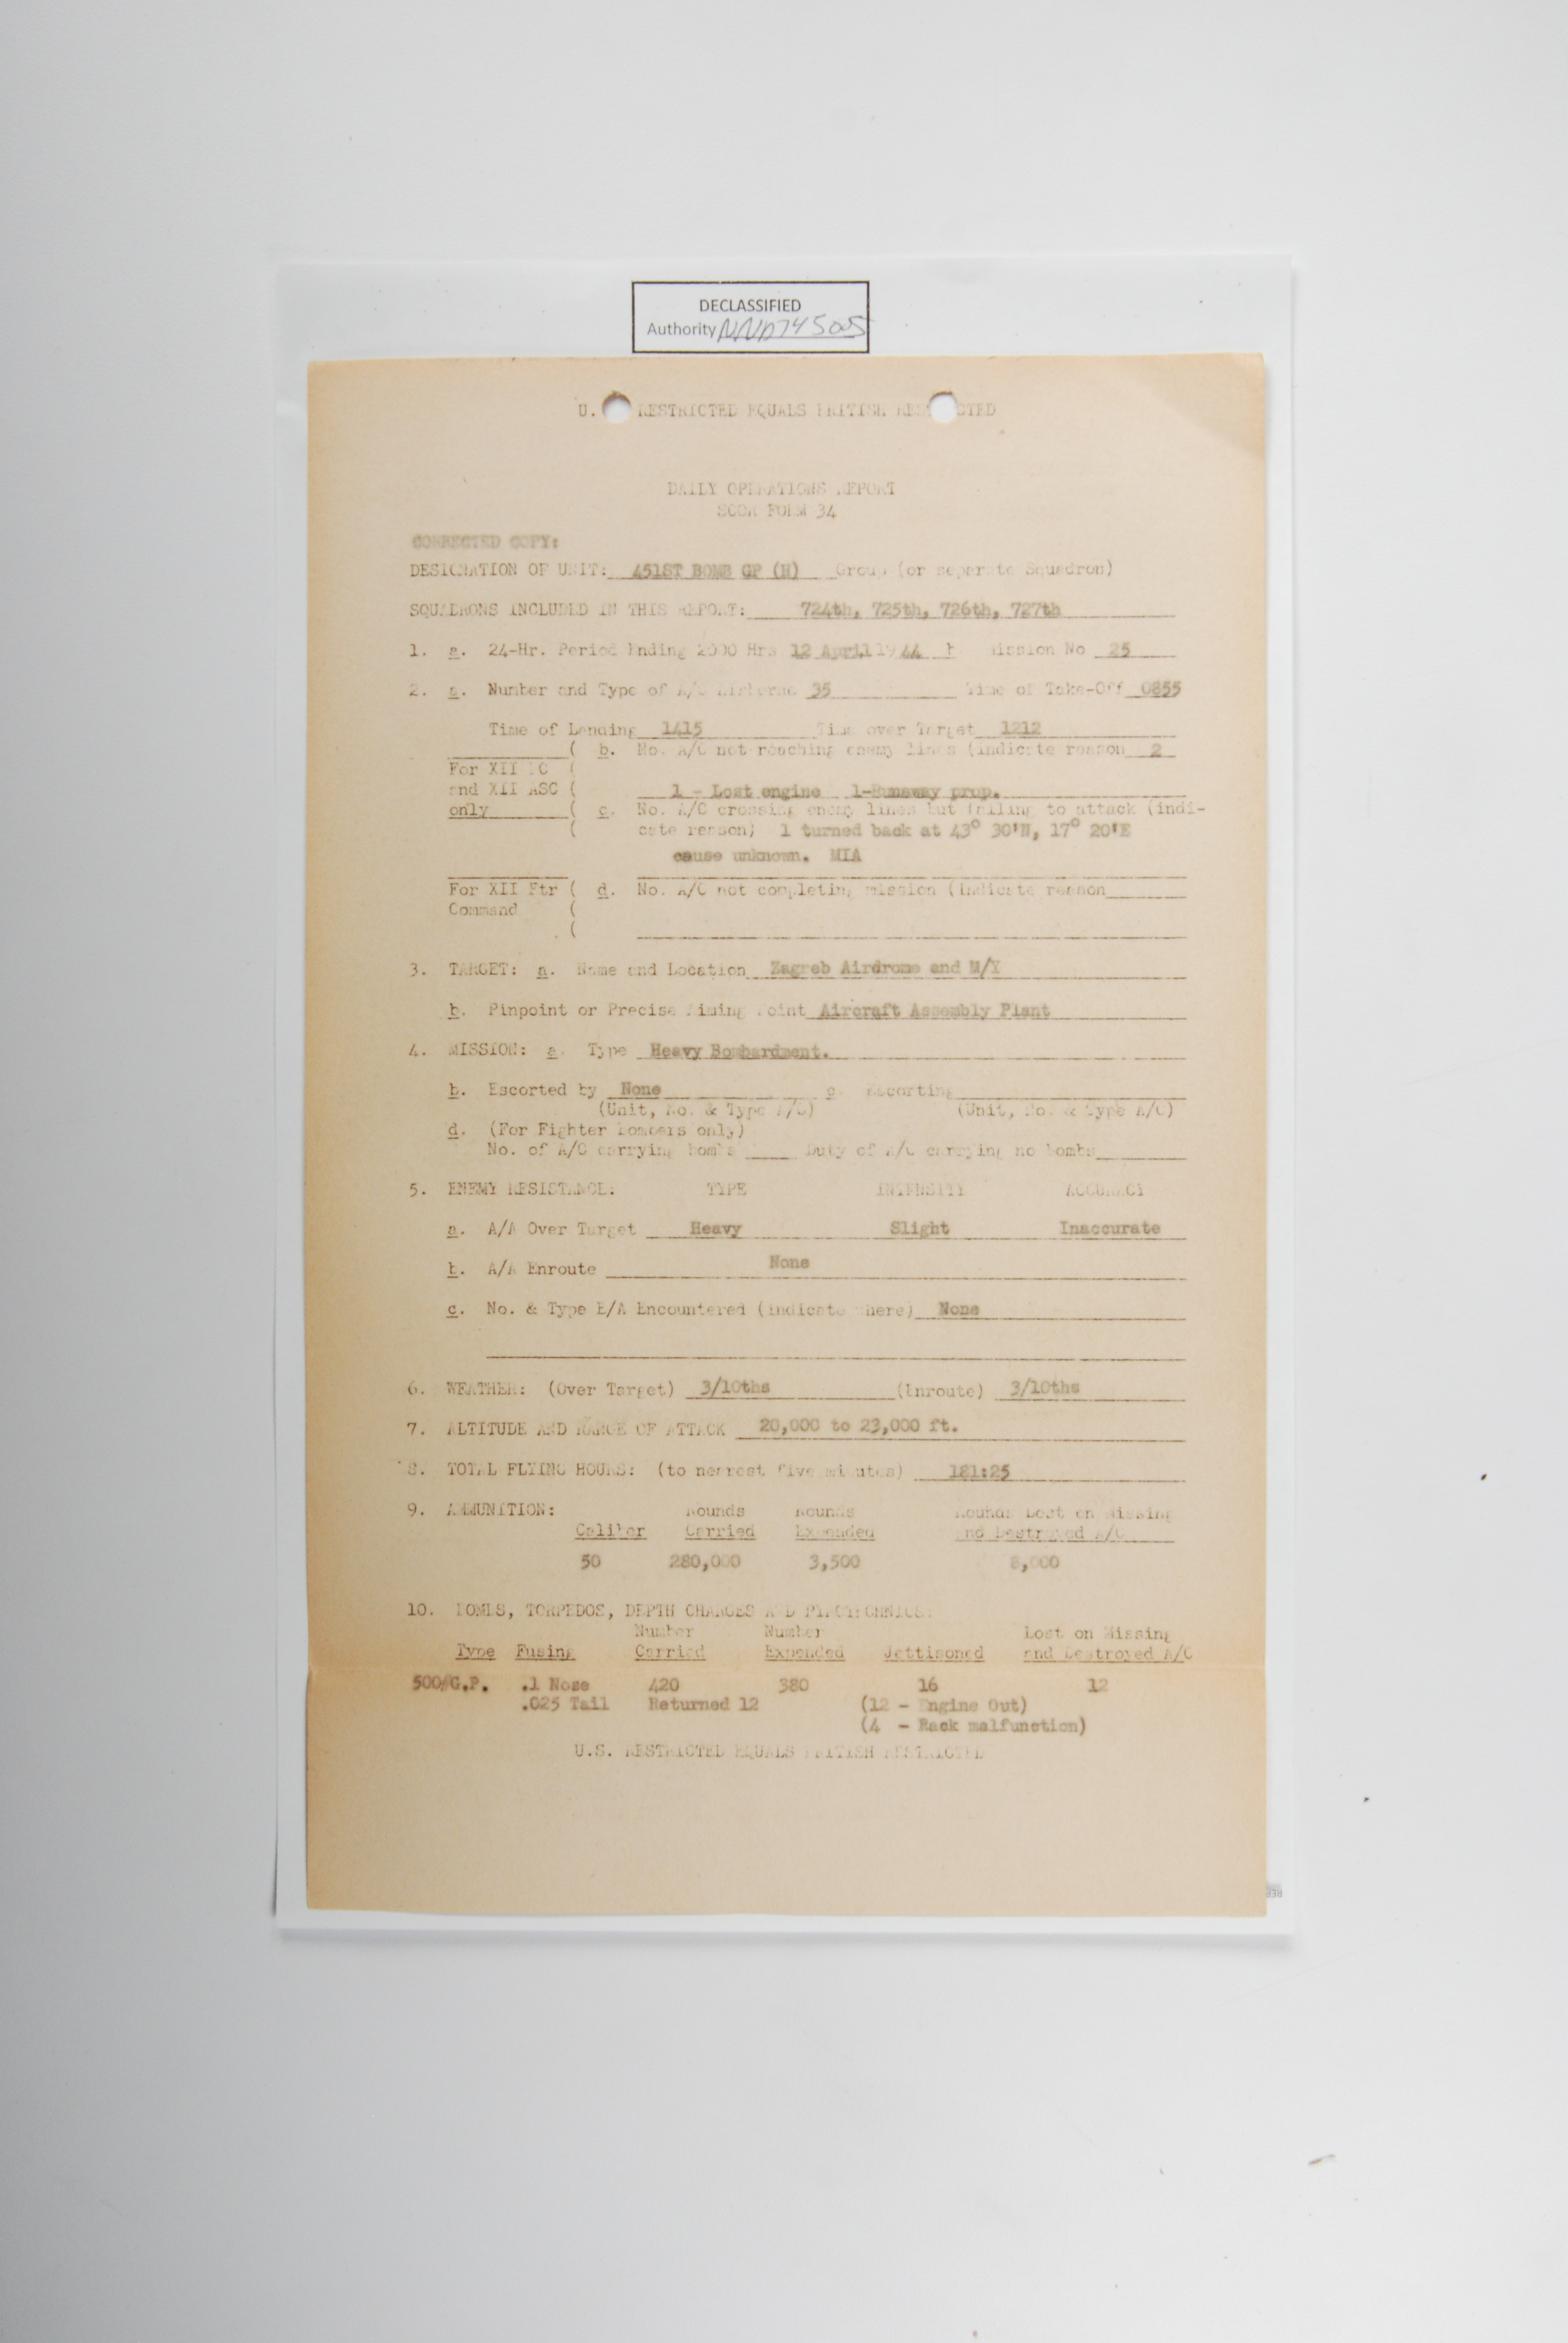 DECLASSIFIED
Authority NND745005
U. RESTRICTED EQUALS BRITISH RESTRICTED
DAILY OPERATIONS REPORT
FORM 34
CORRECTED COPY:
DESIGNATION OF UNIT: 451ST BOMB GP (H) Group (or separate Squadron)
SQUADRONS INCLUDED IN THIS REPORT: 724th, 725th, 726th, 727th
1. a. 24-Hr. Period Ending 2000 Hrs 12 April 1944 b Mission No 25
2. a. Number and Type of A/C Airborne 35 Time of Take-Off 0855
Time of Landing 1415 Time over Target 1212
( b. No. A/C not reaching enemy lines (indicate reason 2
For XII BC (
and XII ASC ( 1 - Lost engine 1-Runaway prop.
only ( c. No. A/C crossing enemy lines but failing to attack (indi-
( cate reason) 1 turned back at 43° 30'N, 17° 20'E
cause unknown. MIA
For XII Ftr ( d. No. A/C not completing mission (indicate reason
Command (
(
3. TARGET: a. Name and Location Zagreb Airdrome and M/Y
b. Pinpoint or Precise Aiming Point Aircraft Assembly Plant
4. MISSION: a. Type Heavy Bombardment.
b. Escorted by None c. Escorting
(Unit, No. & Type A/C) (Unit, No. & Type A/C)
d. (For Fighter Bombers only)
No. of A/C carrying bombs Duty of A/C carrying no bombs
5. ENEMY RESISTANCE: TYPE INTENSITY ACCURACY
a. A/A Over Target Heavy Slight Inaccurate
b. A/A Enroute None
c. No. & Type E/A Encountered (indicate where) None
6. WEATHER: (Over Target) 3/10ths (Enroute) 3/10ths
7. ALTITUDE AND RANGE OF ATTACK 20,000 to 23,000 ft.
8. TOTAL FLYING HOURS: (to nearest five minutes) 181:25
9. AMMUNITION: Rounds Rounds Rounds Lost on Missing
Caliber Carried Expended and Destroyed A/C
50 280,000 3,500 8,000
10. BOMBS, TORPEDOS, DEPTH CHARGES AND PYROTECHNICS:
Number Number Lost on Missing
Type Fusing Carried Expended Jettisoned and Destroyed A/C
500#G.P. .1 Nose 420 380 16 12
.025 Tail Returned 12 (12 - Engine Out)
(4 - Rack malfunction)
U.S. RESTRICTED EQUALS BRITISH RESTRICTED